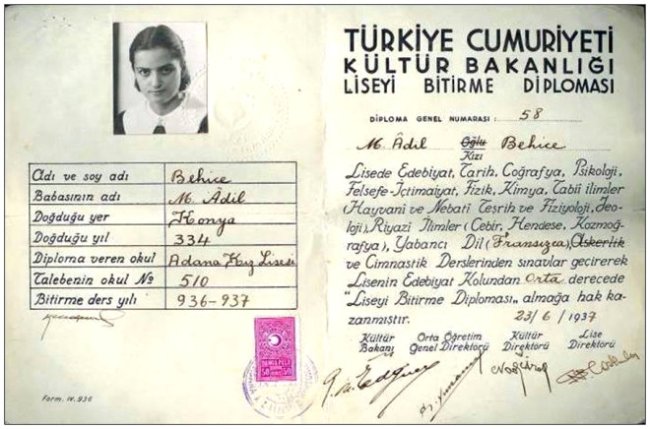 Adı ve soy adı Behice
Babasının adı M. Âdil
Doğduğu yer Konya
Doğduğu yıl 334
Diploma veren okul Adana Kız Lisesi
Talebenin okul № 510
Bitirme ders yılı 936-937
DAMGA PULU
50 50
Form. IV. 936
TÜRKİYE CUMURİYETİ
KÜLTÜR BAKANLIĞI
LİSEYİ BİTİRME DİPLOMASI
DİPLOMA GENEL NUMARASI : 58
M. Âdil Oğlu Behice
Kızı
Lisede Edebiyat, Tarih, Coğrafya, Psikoloji,
Felsefe-İçtimaiyat, Fizik, Kimya, Tabiî ilimler
(Hayvani ve Nebati Teşrih ve Fiziyoloji, Jeo-
loji), Riyazi İlimler (Cebir, Hendese, Kozmoğ-
rafya), Yabancı Dil (Fransızca), Askerlik
ve Cimnastik Derslerinden sınavlar geçirerek
Lisenin Edebiyat Kolundan Orta derecede
"Liseyi Bitirme Diploması" almağa hak ka-
zanmıştır. 23/6/1937
Kültür Orta Öğretim Kültür Lise
Bakanı Genel Direktörü Direktörü Direktörü